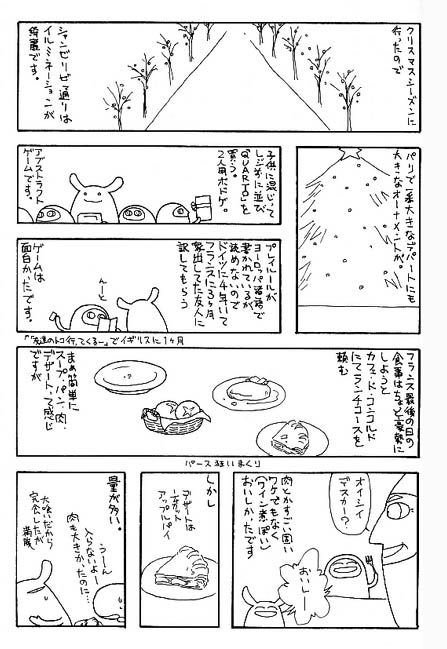 クリスマスシーズンに
行ったので
シャンゼリゼ通りは
イルミネーションが
綺麗です。
パリで一番大きなデパートにも
大きなオーナメントが。
子供に混じって
レジ前に並び
「QUARTO」を
買う。
2人用ボドゲ。
アブストラクト
ゲームです。
プレイルールが
ヨーロッパ諸語で
書かれているが
読めないので
ドイツに4年いて
フランスに3ヶ月
家出してた友人に
訳してもらう
んーと
ゲームは
面白かったです。
でイギリスに1ヶ月
フランス最後の日の
食事はちょと豪勢に
しようと
カフェ・ド・コンコルド
にてランチコースを
頼む
まぁ簡単に
スープ・パン・肉・
デザートって感じ
ですが
パース狂いまくり
オイシイ
デスカー?
おいしー
肉とかすごい固い
ワケでもなく
(ワイン煮ぽい)
おいしかったです
しかし
デザートは
アップルパイ
量が多い。
うーん
入らないよー
肉も大きかったのに…
大喰いだから
完食したが
満腹